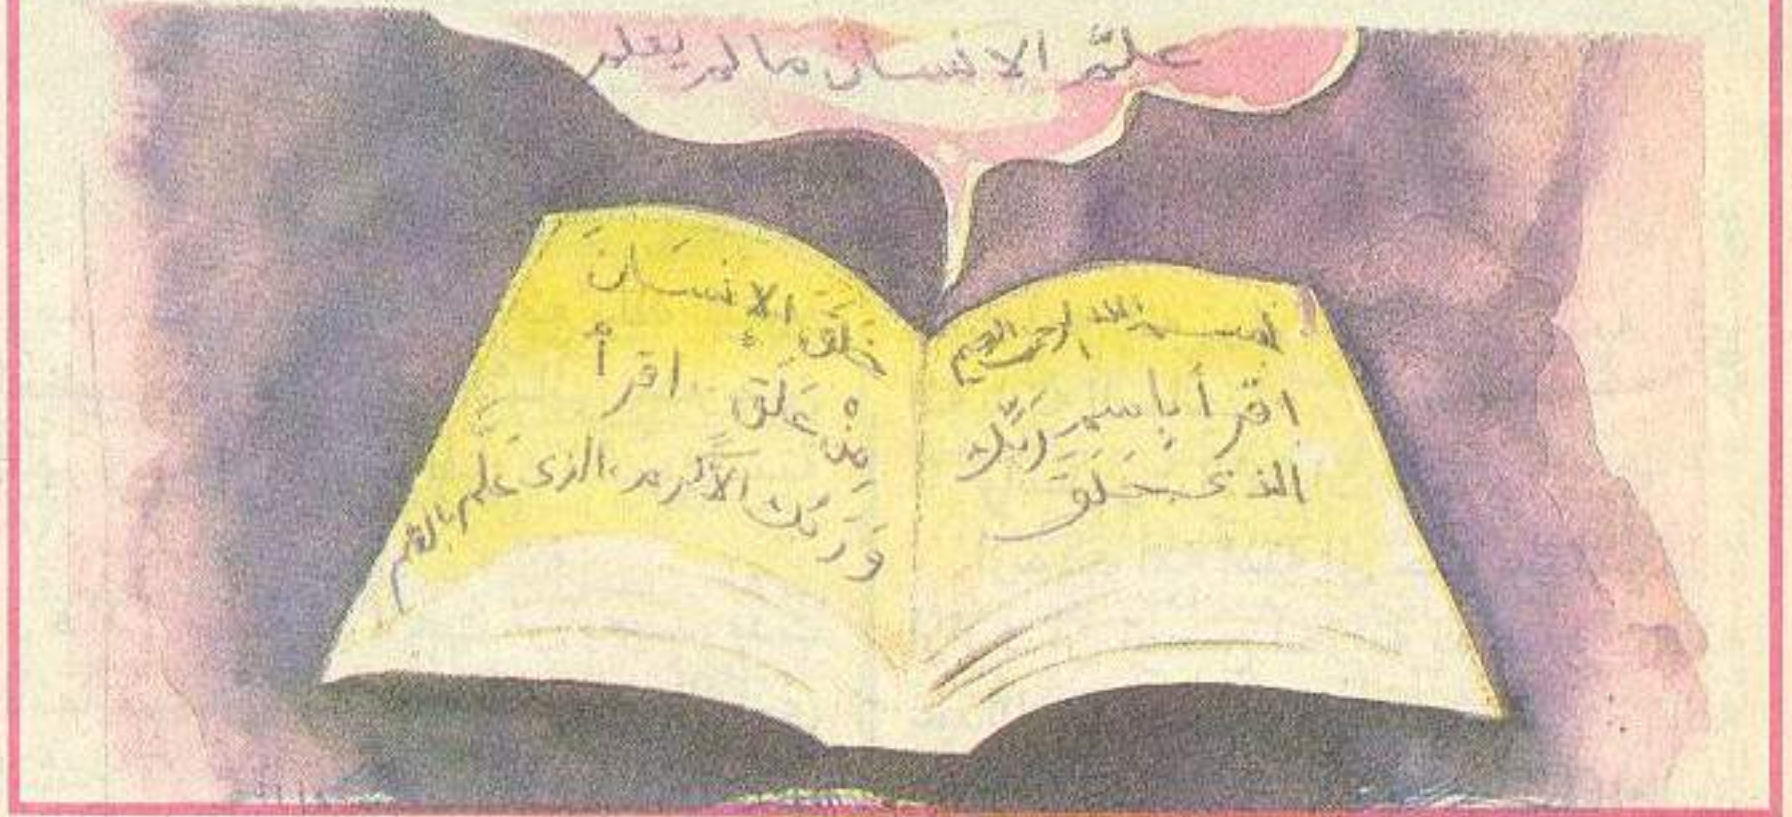 علّم الانسان ما لم يعلم
بسم الله الرحمن الرحيم
اقرأ باسمِ رَبِّك
الذى خَلَق
خَلَقَ الإنسَانَ
مِنْ عَلَق .. اقرأ
وَرَبُّك الأَكرم، الذى علم بالقلم